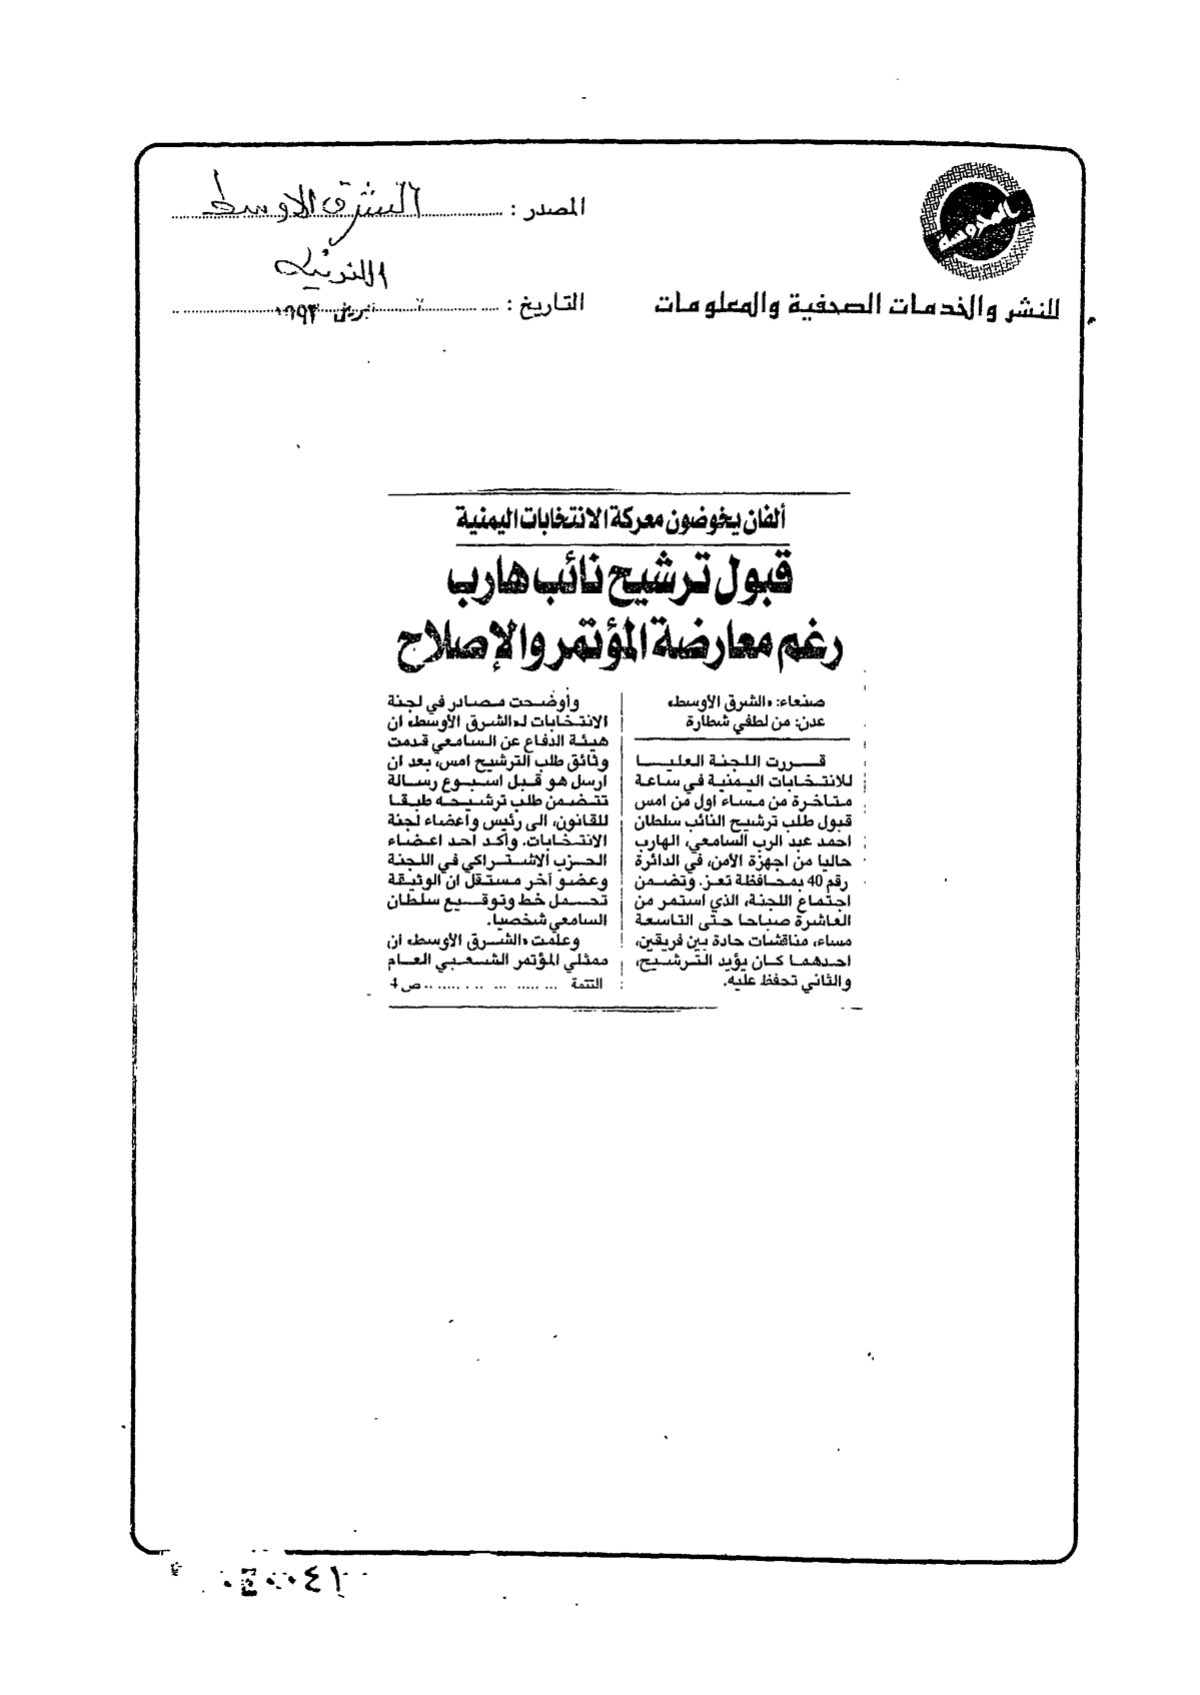 المصدر : الشرق الاوسط
اللندنية
التاريخ : ابريل ١٩٩٣
للنشر والخدمات الصحفية والمعلومات
ألفان يخوضون معركة الانتخابات اليمنية
قبول ترشيح نائب هارب
رغم معارضة المؤتمر والإصلاح
صنعاء: «الشرق الأوسط»
عدن: من لطفي شطارة
قررت اللجنة العليا
للانتخابات اليمنية في ساعة
متأخرة من مساء اول من امس
قبول طلب ترشيح النائب سلطان
احمد عبد الرب السامعي، الهارب
حاليا من اجهزة الأمن، في الدائرة
رقم 40 بمحافظة تعز. وتضمن
اجتماع اللجنة، الذي استمر من
العاشرة صباحا حتى التاسعة
مساء، مناقشات حادة بين فريقين،
احدهما كان يؤيد الترشيح،
والثاني تحفظ عليه.
وأوضحت مصادر في لجنة
الانتخابات لـ«الشرق الأوسط» ان
هيئة الدفاع عن السامعي قدمت
وثائق طلب الترشيح امس، بعد ان
ارسل هو قبل اسبوع رسالة
تتضمن طلب ترشيحه طبقا
للقانون، الى رئيس وأعضاء لجنة
الانتخابات. وأكد احد اعضاء
الحزب الاشتراكي في اللجنة
وعضو آخر مستقل ان الوثيقة
تحمل خط وتوقيع سلطان
السامعي شخصيا.
وعلمت «الشرق الأوسط» ان
ممثلي المؤتمر الشعبي العام
التتمة ... ص 4